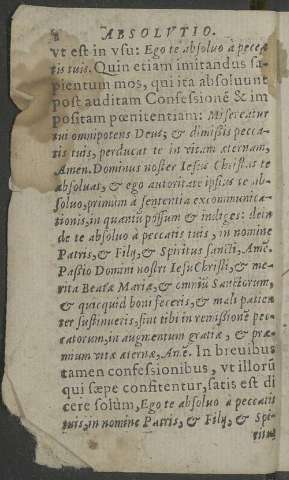 8 ABSOLVTIO.
vt est in vsu: Ego te absoluo à pecca
tis tuis. Quin etiam imitandus sa-
pientum mos, qui ita absoluunt
post auditam Confessionē & im
positam pœnitentiam: Misereatur
tui omnipotens Deus, & dimissis pecca-
tis tuis, perducat te in vitam æternam,
Amen. Dominus noster Iesus Christus te
absoluat, & ego autoritate ipsius te ab-
soluo, primùm à sententia excommunica-
tionis, in quantū possum & indiges: dein
de te absoluo à peccatis tuis, in nomine
Patris, & Filij, & Spiritus sancti, Amē.
Passio Domini nostri Iesu Christi, & me-
rita Beatæ Mariæ, & omniū Sanctorum,
& quicquid boni feceris, & mali patien
ter sustinueris, sint tibi in remissionē pec-
catorum, in augmentum gratiæ, & præ-
mium vitæ æternæ, Amē. In breuibus
tamen confessionibus, vt illorū
qui sæpe confitentur, satis est di
cere solùm, Ego te absoluo à peccatis
tuis, in nomine Patris, & Filij, & Spi-